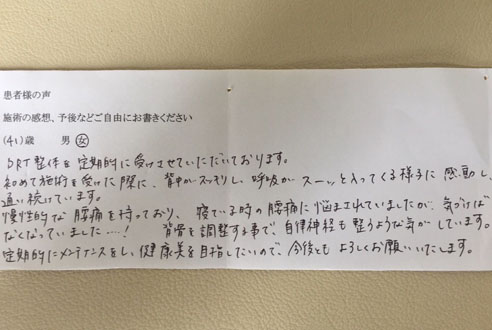 患者様の声
施術の感想、予後などご自由にお書きください
(41)歳 男 女
DRT整体を定期的に受けさせていただいております。
初めて施術を受けた際に、背中がスッキリし、呼吸がスーッと入ってくる様子に感動し、
通い続けています。
慢性的な腰痛を持っており、寝ている時の腰痛に悩まされていましたが、気づけば
なくなっていました……! 背骨を調整する事で、自律神経も整うような気がしています。
定期的にメンテナンスをし、健康美を目指したいので、今後とも よろしくお願いいたします。